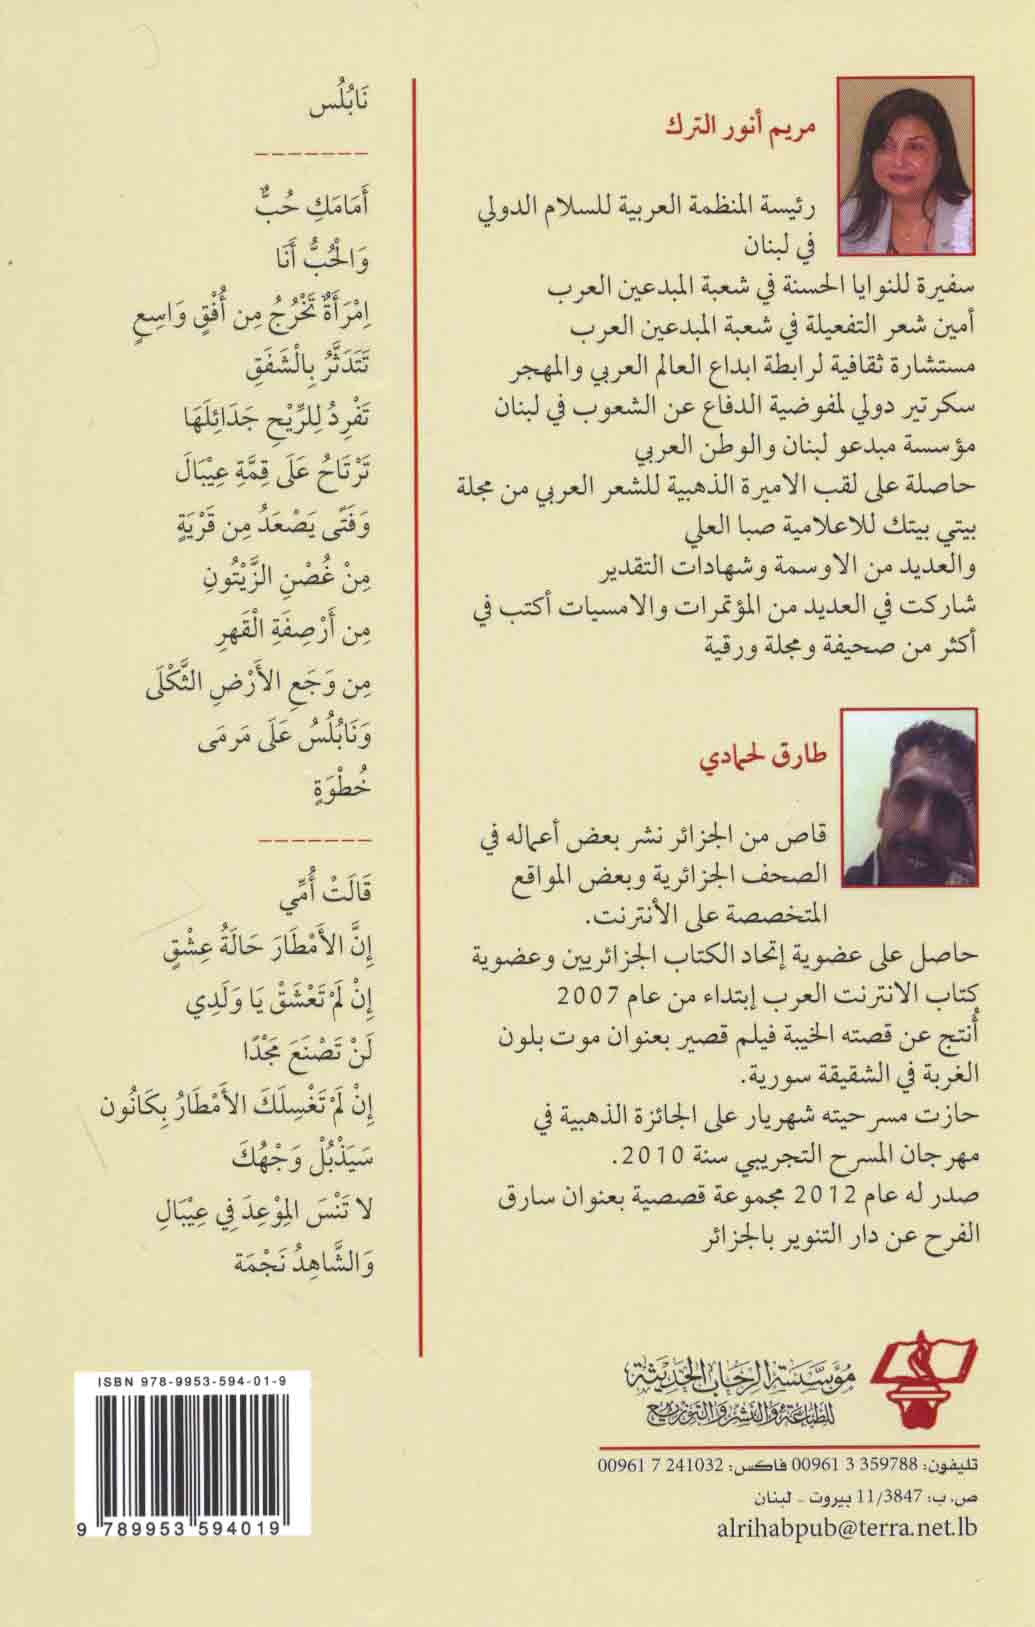 مريم أنور الترك
رئيسة المنظمة العربية للسلام الدولي
في لبنان
سفيرة للنوايا الحسنة في شعبة المبدعين العرب
أمين شعر التفعيلة في شعبة المبدعين العرب
مستشارة ثقافية لرابطة ابداع العالم العربي والمهجر
سكرتير دولي لمفوضية الدفاع عن الشعوب في لبنان
مؤسسة مبدعو لبنان والوطن العربي
حاصلة على لقب الاميرة الذهبية للشعر العربي من مجلة
بيتي بيتك للاعلامية صبا العلي
والعديد من الاوسمة وشهادات التقدير
شاركت في العديد من المؤتمرات والامسيات أكتب في
أكثر من صحيفة ومجلة ورقية
طارق لحمادي
قاص من الجزائر نشر بعض أعماله في
الصحف الجزائرية وبعض المواقع
المتخصصة على الأنترنت.
حاصل على عضوية إتحاد الكتاب الجزائريين وعضوية
كتاب الانترنت العرب إبتداء من عام 2007
أُنتج عن قصته الخيبة فيلم قصير بعنوان موت بلون
الغربة في الشقيقة سورية.
حازت مسرحيته شهريار على الجائزة الذهبية في
مهرجان المسرح التجريبي سنة 2010.
صدر له عام 2012 مجموعة قصصية بعنوان سارق
الفرح عن دار التنوير بالجزائر
نَابُلُس
-------
أَمَامَكِ حُبٌّ
وَالْحُبُّ أَنَا
اِمْرَأَةٌ تَخْرُجُ مِن أُفْقٍ وَاسِعٍ
تَتَدَثَّرُ بِالْشَفَقِ
تَفْرِدُ لِلرِّيْحِ جَدَائِلَهَا
تَرْتَاحُ عَلَى قِمَّةِ عِيْبَالَ
وَفَتًى يَصْعَدُ مِن قَرْيَةٍ
مِنْ غُصْنِ الزَّيْتُونِ
مِن أَرْصِفَةِ الْقَهرِ
مِن وَجَعِ الأَرْضِ الثَّكْلَى
وَنَابُلُسُ عَلَى مَرمَى
خُطْوَةٍ
-------
قَالَتْ أُمِّي
إِنَّ الأَمْطَارَ حَالَةُ عِشْقٍ
إِنْ لَمْ تَعْشَقْ يَا وَلَدِي
لَنْ تَصْنَعَ مَجْدًا
إِنْ لَمْ تَغْسِلَكَ الأَمْطَارُ بِكَانُون
سَيَذْبُلْ وَجْهُكَ
لا تَنْسَ المِوْعِدَ فِي عِيْبَالِ
وَالشَّاهِدُ نَجْمَة
مؤسسة الرحاب الحديثة
للطباعة والنشر والتوزيع
تليفون: 00961 3 359788 فاكس: 00961 7 241032
ص. ب: 11/3847 بيروت - لبنان
alrihabpub@terra.net.lb
ISBN 978-9953-594-01-9
9 789953 594019